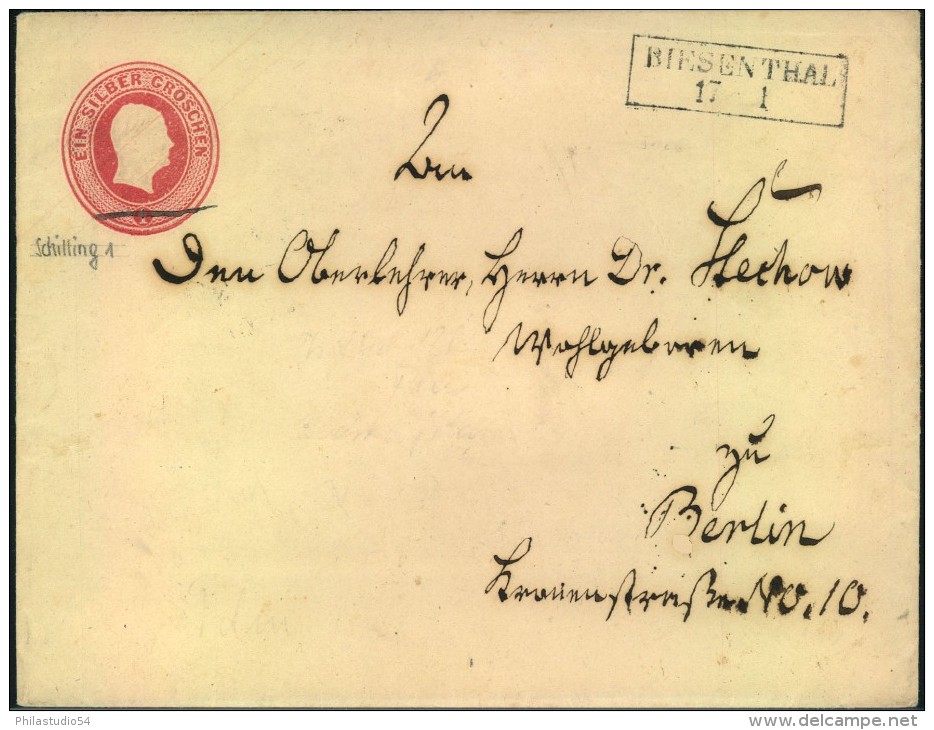 EIN SILBER GROSCHEN
1
BIESENTHAL
17 1
Schilling 1
An
Den Oberlehrer, Herrn Dr. Stechow
Wohlgeboren
zu
Berlin
No. 10.
Philastudio54
www.delcampe.net